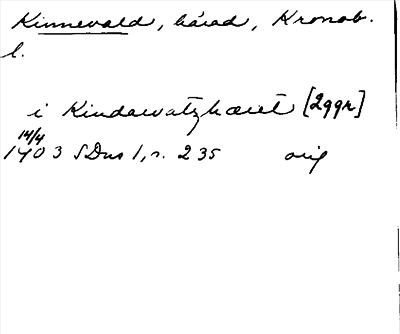 Kinnevald, härad, Kronob.
l.
i Kindawatzhæret [2ggr]
14/4
1403 SDns 1, s. 235 orig